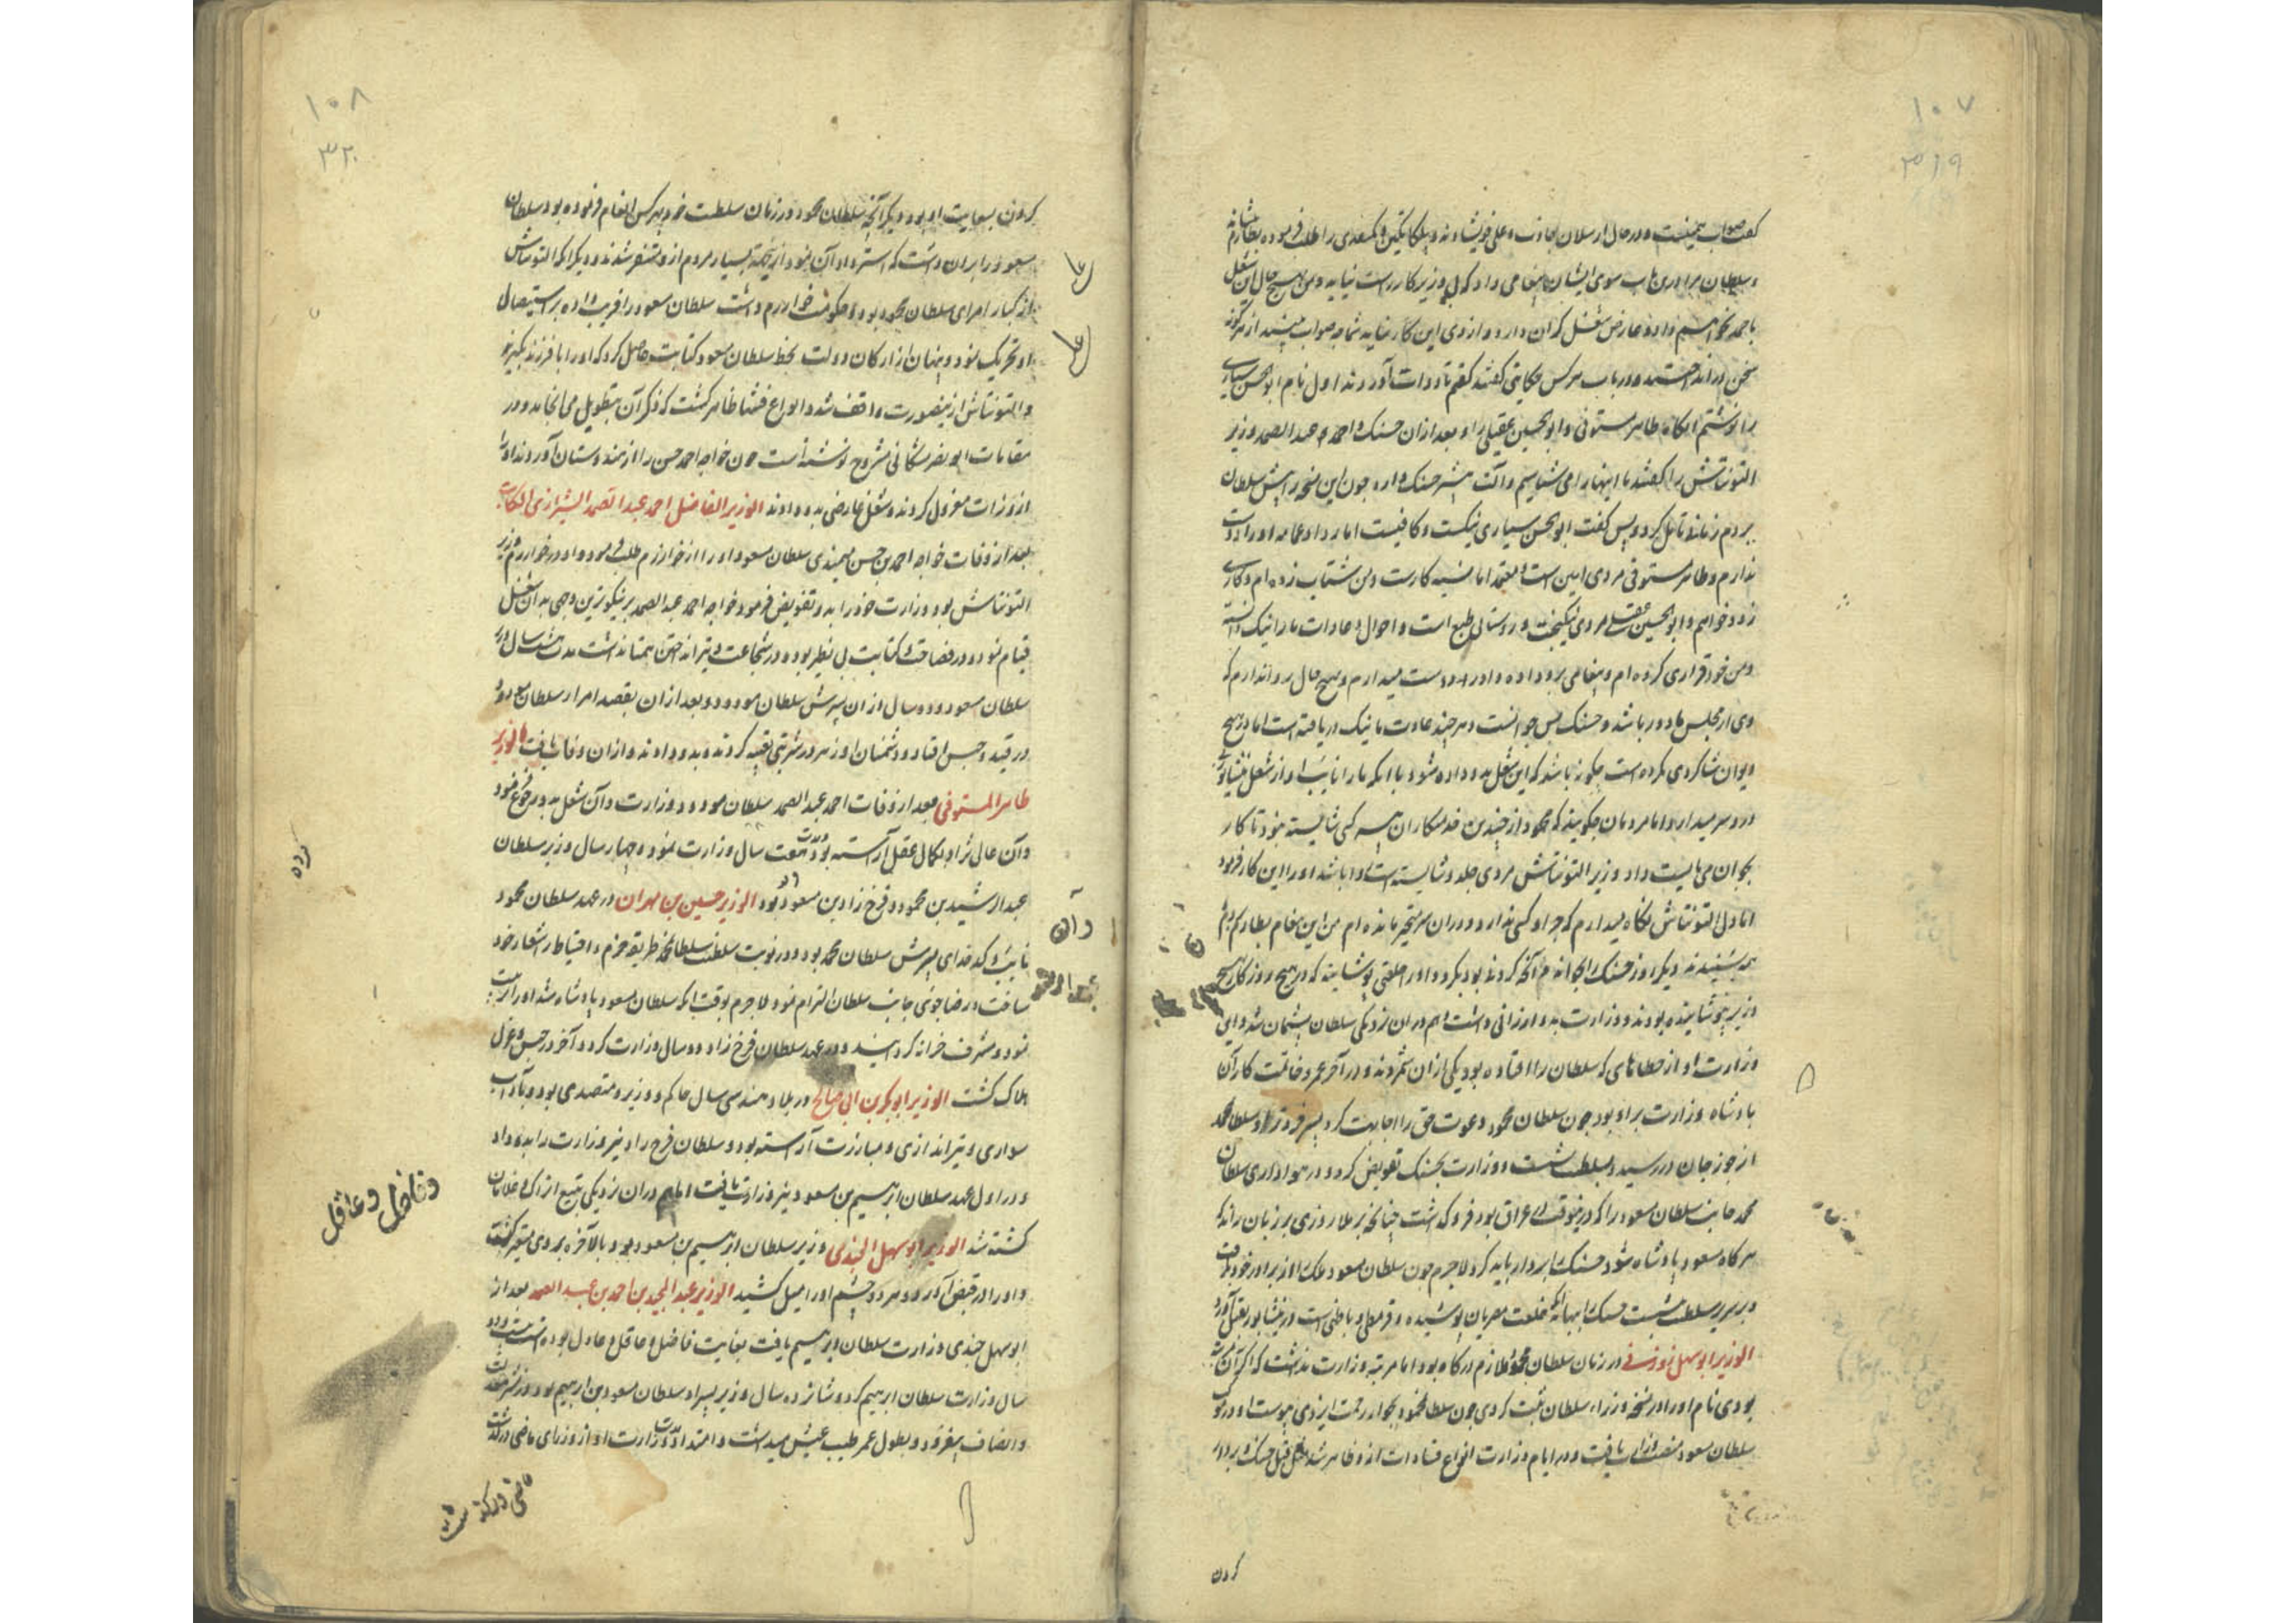 ۱۰۷
۳۱۹
گفت صواب همینست و در حال ارسلان جاذب و علی خویشاوند و بلکاتکین و بکتغدی را طلب فرموده بطارم نشاند
و سلطان مرا درین باب سوی ایشان پیغامی داد که بی وزیر کار راست نیاید و من بهیچ حال این شغل
باحمد نخواهیم داد و عارض شغل گران دارد و از وی این کار نیاید شما چه صواب بینید از هرگونه
سخن در انداختند و در باب هر کس حکایتی گفتند گفتم تا دوات آوردند اول نام ابوالحسن سیاری
را نوشتم آنگاه طاهر مستوفی و ابوالحسین عقیلی را و بعد از ان حسنک و احمد عبدالصمد وزیر
التونتاش را گفتند ما اینها را می شناسیم و آلت بیشتر حسنک دارد چون این نسخه را پیش سلطان
بردم زمانی تامل کرد و پس گفت ابوالحسن سیاری نیکست و کافیست اما ردا و عمامه او را دوست
ندارم و طاهر مستوفی مردی امین است و معتمد اما بسته کارست و من شتاب زده ام و کاری
زود خواهم و ابوالحسین عقیلی مردی نیکبخت و روستائی طبع است و احوال و عادات ما را نیک دانسته
و من خود قراری کرده ام و پیغامی برو داده و او را دوست میدارم و بهیچ حال روا ندارم که
وی از مجلس ما دور باشد و حسنک بس جوانست و هر چند عادت ما نیک دریافته است اما در هیچ
دیوان شاگردی نکرده است چگونه باشد که این شغل بدو داده شود با آنکه ما را نایب او از شغل نیشابور
درد سر میدارد و اما مردمان چگویند که محمود از چندین خدمتکاران همه کسی شایسته نبود تا کار
بجوان می بایست داد وزیر التونتاش مردی جلد و شایسته است و ا باشد او را این کار فرمود
اما دل التونتاش نگاه میدارم که جز او کسی ندارد و در ان متحیر مانده ام من این پیغام بطارم بردم
همه شنیدند دیگر روز حسنک را بخواندند آنچه کردند بود بکرد و او را خلعتی پوشانید که در هیچ روزگار هیچ
وزیر نپوشانیده بودند و وزارت بدو ارزانی داشت و هم در ان نزدیکی سلطان پشیمان شد و این
وزارت او از خطاهای که سلطان را افتاده بود یکی از ان شمردند و در آخر عمر و خاتمت کار آن
پادشاه وزارت بر او بود چون سلطان محمود دعوت حق را اجابت کرد پسر فروتر او سلطان محمد
از جوزجان در رسید و بسلطنت نشست و وزارت بحسنک تفویض کرد و در هواداری سلطان
محمد جانب سلطان مسعود را که در آنوقت در عراق بود فرو گذاشت چنانچه بر ملا روزی بر زبان راند که
هرگاه مسعود پادشاه شود حسنک را بردار باید کرد لاجرم چون سلطان مسعود ملک را از برادر خود بگرفت
و بر سریر سلطنت نشست حسنک را ببهانه آنکه خلعت مصریان پوشیده و قرمطی و باطنی است در نیشابور بقتل آورد
الوزیر ابوسهل زوزنی در زمان سلطان محمود ملازم درگاه بود اما مرتبه وزارت نداشت که اگر آن
بودی نام او را در نسخه وزراء سلطان ثبت کردی چون سلطان محمود بجوار رحمت ایزدی پیوست او در نوبت
سلطان مسعود منصب وزارت یافت و در ایام وزارت انواع فسادات از و ظاهر شد مثل قتل حسنک و بردار
کردن
۱۰۸
۳۲۰
کردن بسعایت او بود و دیگر آنچه سلطان محمود در زمان سلطنت خود بهر کس انعام فرموده بود سلطان
مسعود را بران داشت که استرداد آن نمود ازین جهة بسیار مردم از و متنفر شدند و دیگر آنکه التونتاش
از کبار امرای سلطان محمود بود و حکومت خوارزم داشت سلطان مسعود را فریب داده بر استیصال
او تحریک نمود و پنهان از ارکان دولت بخط سلطان مسعود کتابت حاصل کرد که او را با فرزند بگیرند
و التونتاش ازینصورت واقف شد و انواع فتنها ظاهر گشت که ذکر آن بتطویل می انجامد و در
مقامات ابونصر مشکانی مشروح نوشته است چون خواجه احمد حسن را از هندوستان آوردند او را
از وزارت معزول کردند و شغل عارضی بدو دادند الوزیر الفاضل احمد عبدالصمد الشیرازی الکاتب
بعد از وفات خواجه احمد بن حسن میمندی سلطان مسعود او را از خوارزم طلب فرموده او در خوارزم وزیر
التونتاش بود وزارت خود را بدو تفویض فرمود خواجه احمد عبدالصمد بر نیکوترین وجهی بدان شغل
قیام نمود و در فصاحت و کتابت بی نظیر بود و در شجاعت و تیر انداختن همتا نداشت مدت هشت سال وزیر
سلطان مسعود و دو سال از ان پسرش سلطان مودود و بعد از ان بقصد امرا سلطان مودود
در قید و حبس افتاد و دشمنان او زهر در شربتی تعبیه کردند و بدو دادند و از ان وفات یافت الوزیر
طاهر المستوفی بعد از وفات احمد عبدالصمد سلطان مودود وزارت و آن شغل بدو رجوع نمود
و آن عالی نژاد بکمال عقل آراسته بود و مدت هفت سال وزارت نمود و چهار سال وزیر سلطان
عبدالرشید بن محمود و فرخ زاد بن مسعود بود الوزیر حسین بن مهران در عهد سلطان محمود
نایب و کدخدای پسرش سلطان محمد بود و در نوبت سلطنت سلطان محمد طریقه حزم و احتیاط را شعار خود
ساخت و رضا جوئی جانب سلطان التزام نمود لاجرم بوقت آنکه سلطان مسعود پادشاه شد او را تربیت
نمود و مشرف خزانه گردانید و در عهد سلطان فرخ زاد دو سال وزارت کرد و آخر در حبس و عزل
هلاک گشت الوزیر ابوبکر بن ابی صالح در بلاد هند سی سال حاکم و وزیر و متصدی بود و بآداب
سواری و تیر اندازی و مبارزت آراسته بود و سلطان فرخ زاد نیز وزارت را بدو داد
و در اول عهد سلطان ابراهیم بن مسعود نیز وزارت یافت و هم در ان نزدیکی بتیغ اتراک و غلامان
کشته شد الوزیر ابوسهل الجندی وزیر سلطان ابراهیم بن مسعود بود و بالآخره بر وی متغیر گشت
و او را در قبض آورد و هر دو چشم او را میل کشید الوزیر عبدالمجید بن احمد بن عبدالصمد بعد از
ابوسهل جندی وزارت سلطان ابراهیم یافت بغایت فاضل و عاقل و عادل بوده است بیست و دو
سال وزارت سلطان ابراهیم کرد و شانزده سال وزیر پسر او سلطان مسعود بن ابراهیم بود و در نشر معدلت
و انصاف بیفزود و بطول عمر و طیب عیش میداشت و امتداد مدت وزارت او از وزرای ماضی درگذشت
کرده
وآن
وفاضل وعاقل